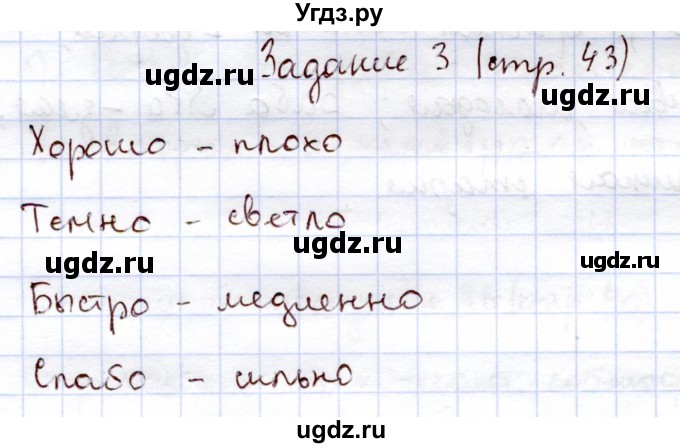 Угдз.ру
Задание 3 (стр. 43)
ugdz.ru ugdz.ru
Хорошо – плохо
ugdz.ru
Темно – светло
ugdz.ru
ugdz.ru ugdz.ru
Быстро – медленно
ugdz.ru
Слабо – сильно
ugdz.ru ugdz.ru
Угдз.ру